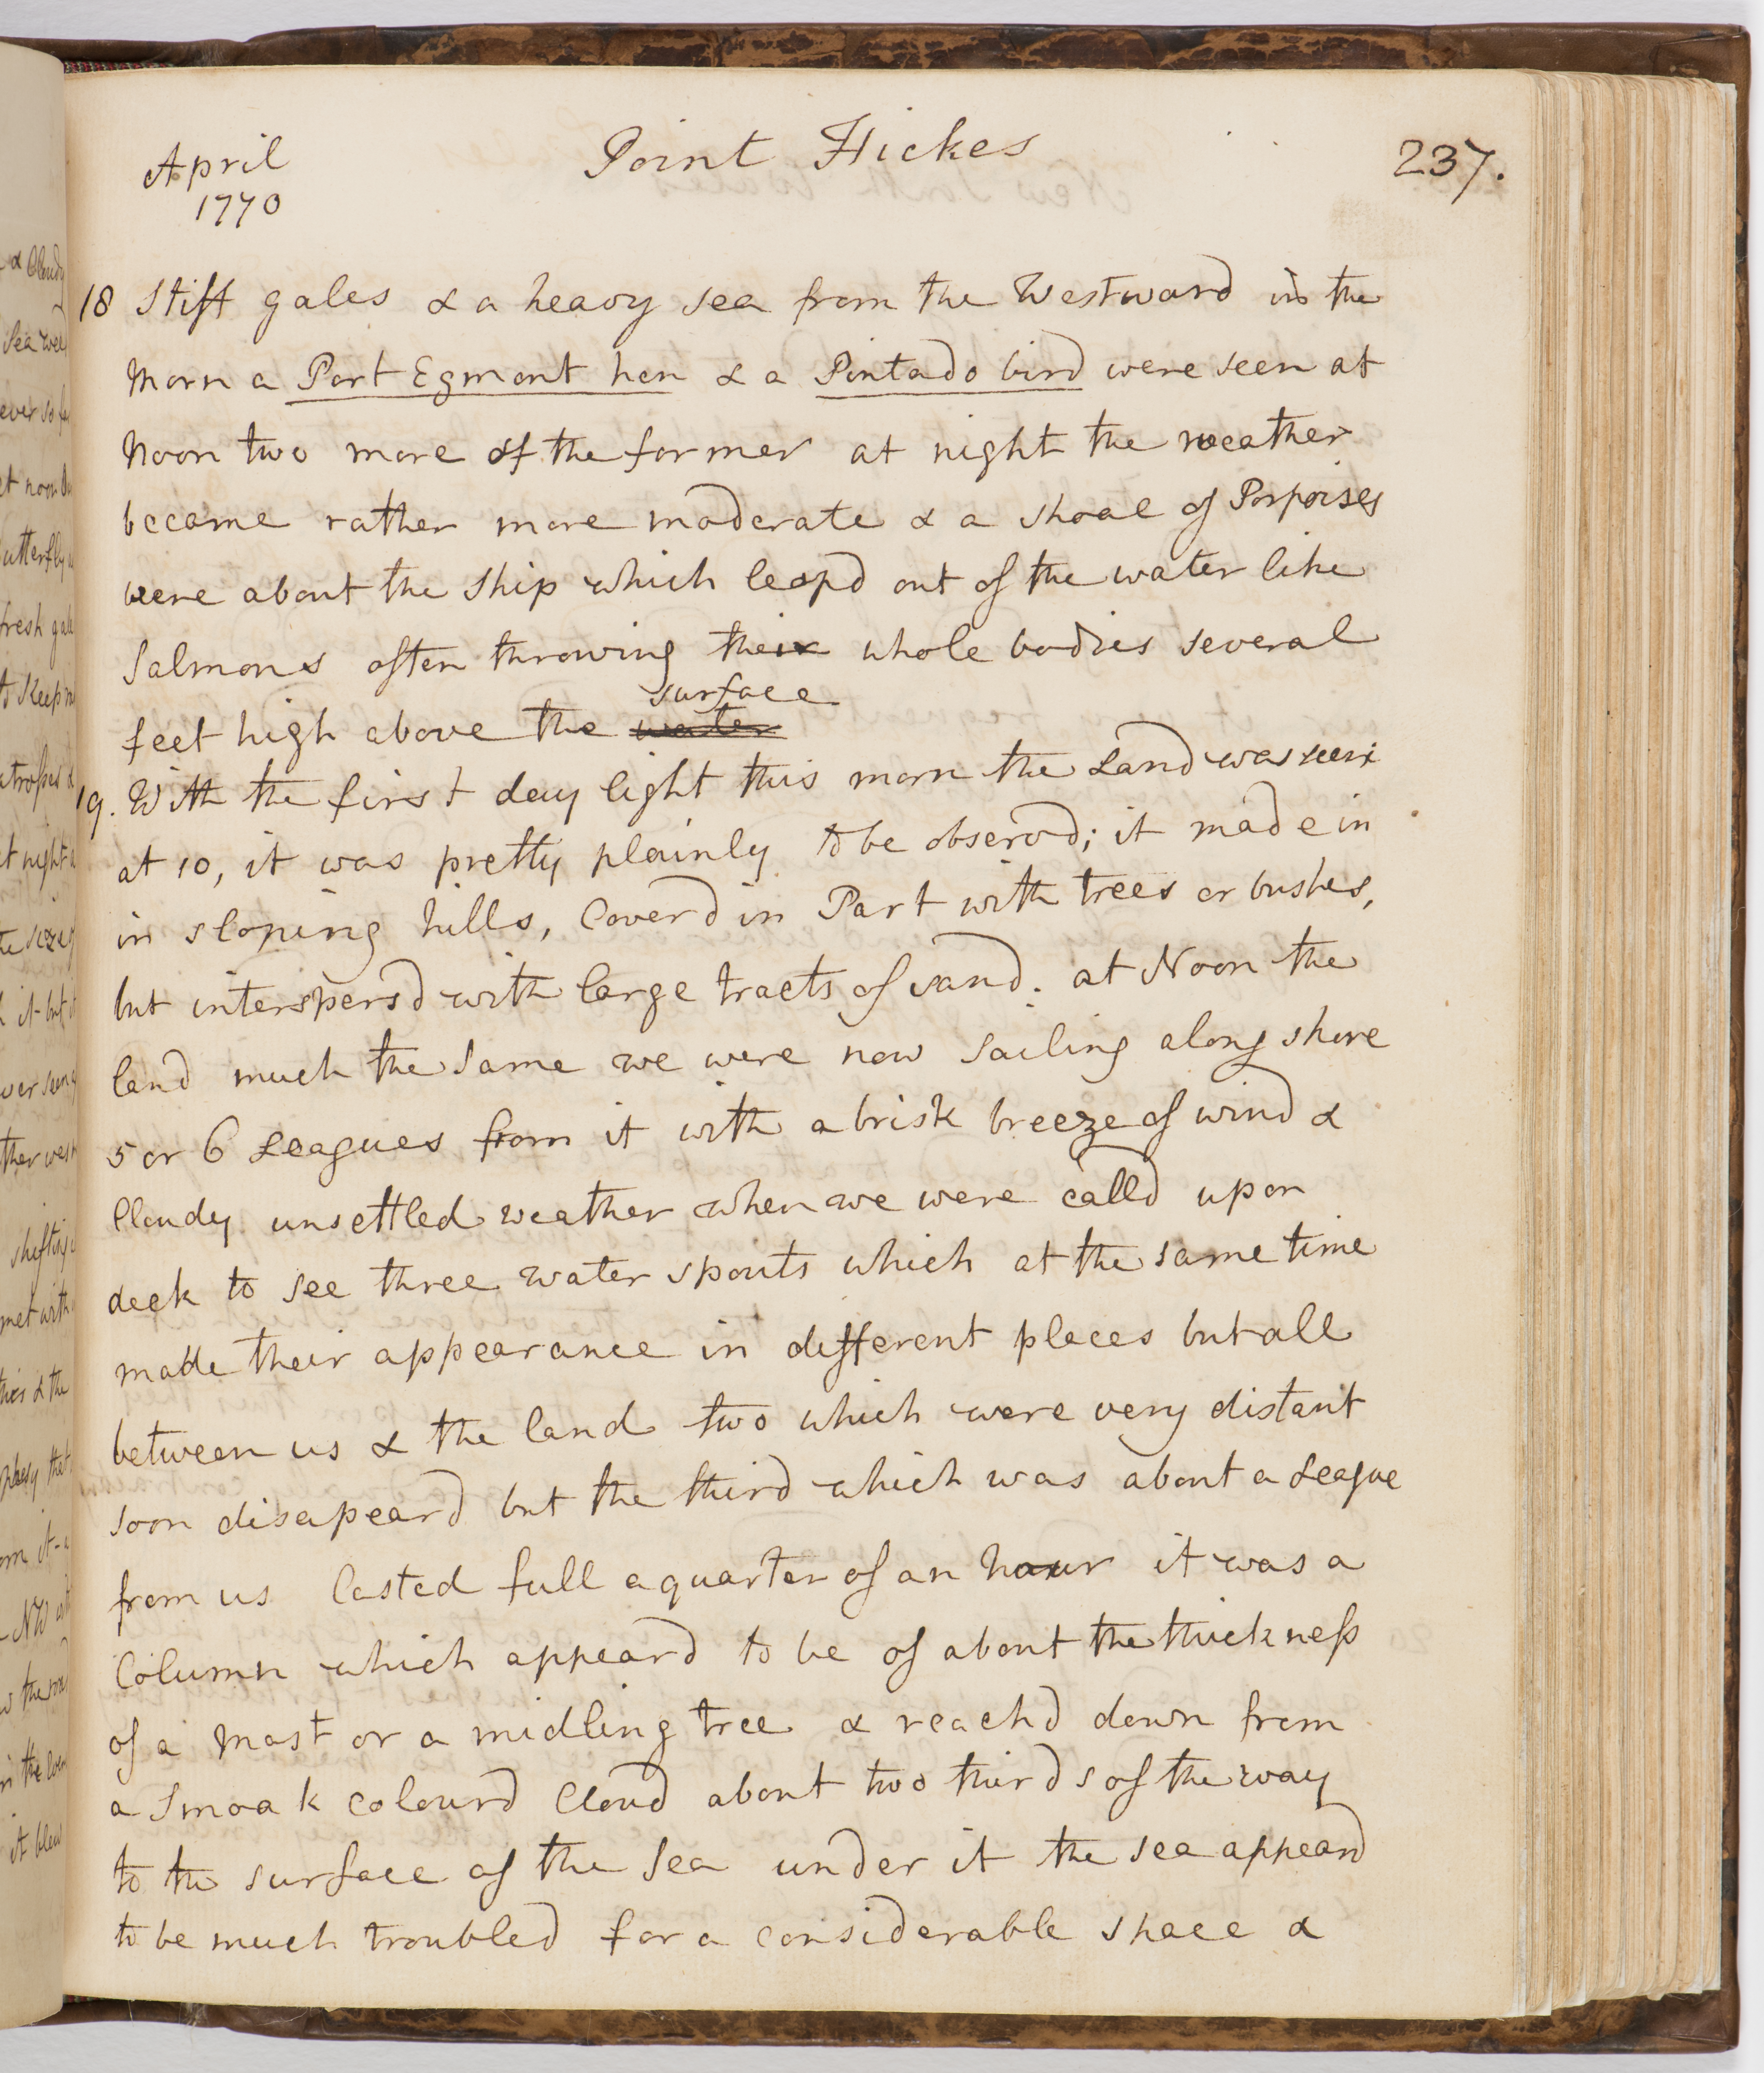 April
1770
Point Hickes
237.
18 Stiff gales & a heavy sea from the Westward in the
Morn a Port Egmont hen & a Pintado bird were seen at
Noon two more of the former at night the weather
became rather more moderate & a shoal of Porpoises
were about the Ship which leapd out of the water like
Salmons often throwing their whole bodies several
surface
feet high above the water
19. With the first day light this morn the Land was seen
at 10, it was pretty plainly to be observd; it made in
in sloping hills, Coverd in Part with trees or bushes,
but interspersd with large tracts of sand. at Noon the
land much the same we were now sailing along shore
5 or 6 Leagues from it with a brisk breeze of wind &
Cloudy unsettled weather when we were calld upon
deck to see three water spouts which at the same time
made their appearance in different places but all
between us & the land two which were very distant
soon disapeard but the third which was about a League
from us lasted full a quarter of an hour it was a
Column which appeard to be of about the thickness
of a Mast or a midling tree & reachd down from
a Smoak colourd Cloud about two thirds of the way
to the surface of the Sea under it the sea appeard
to be much troubled for a considerable space &